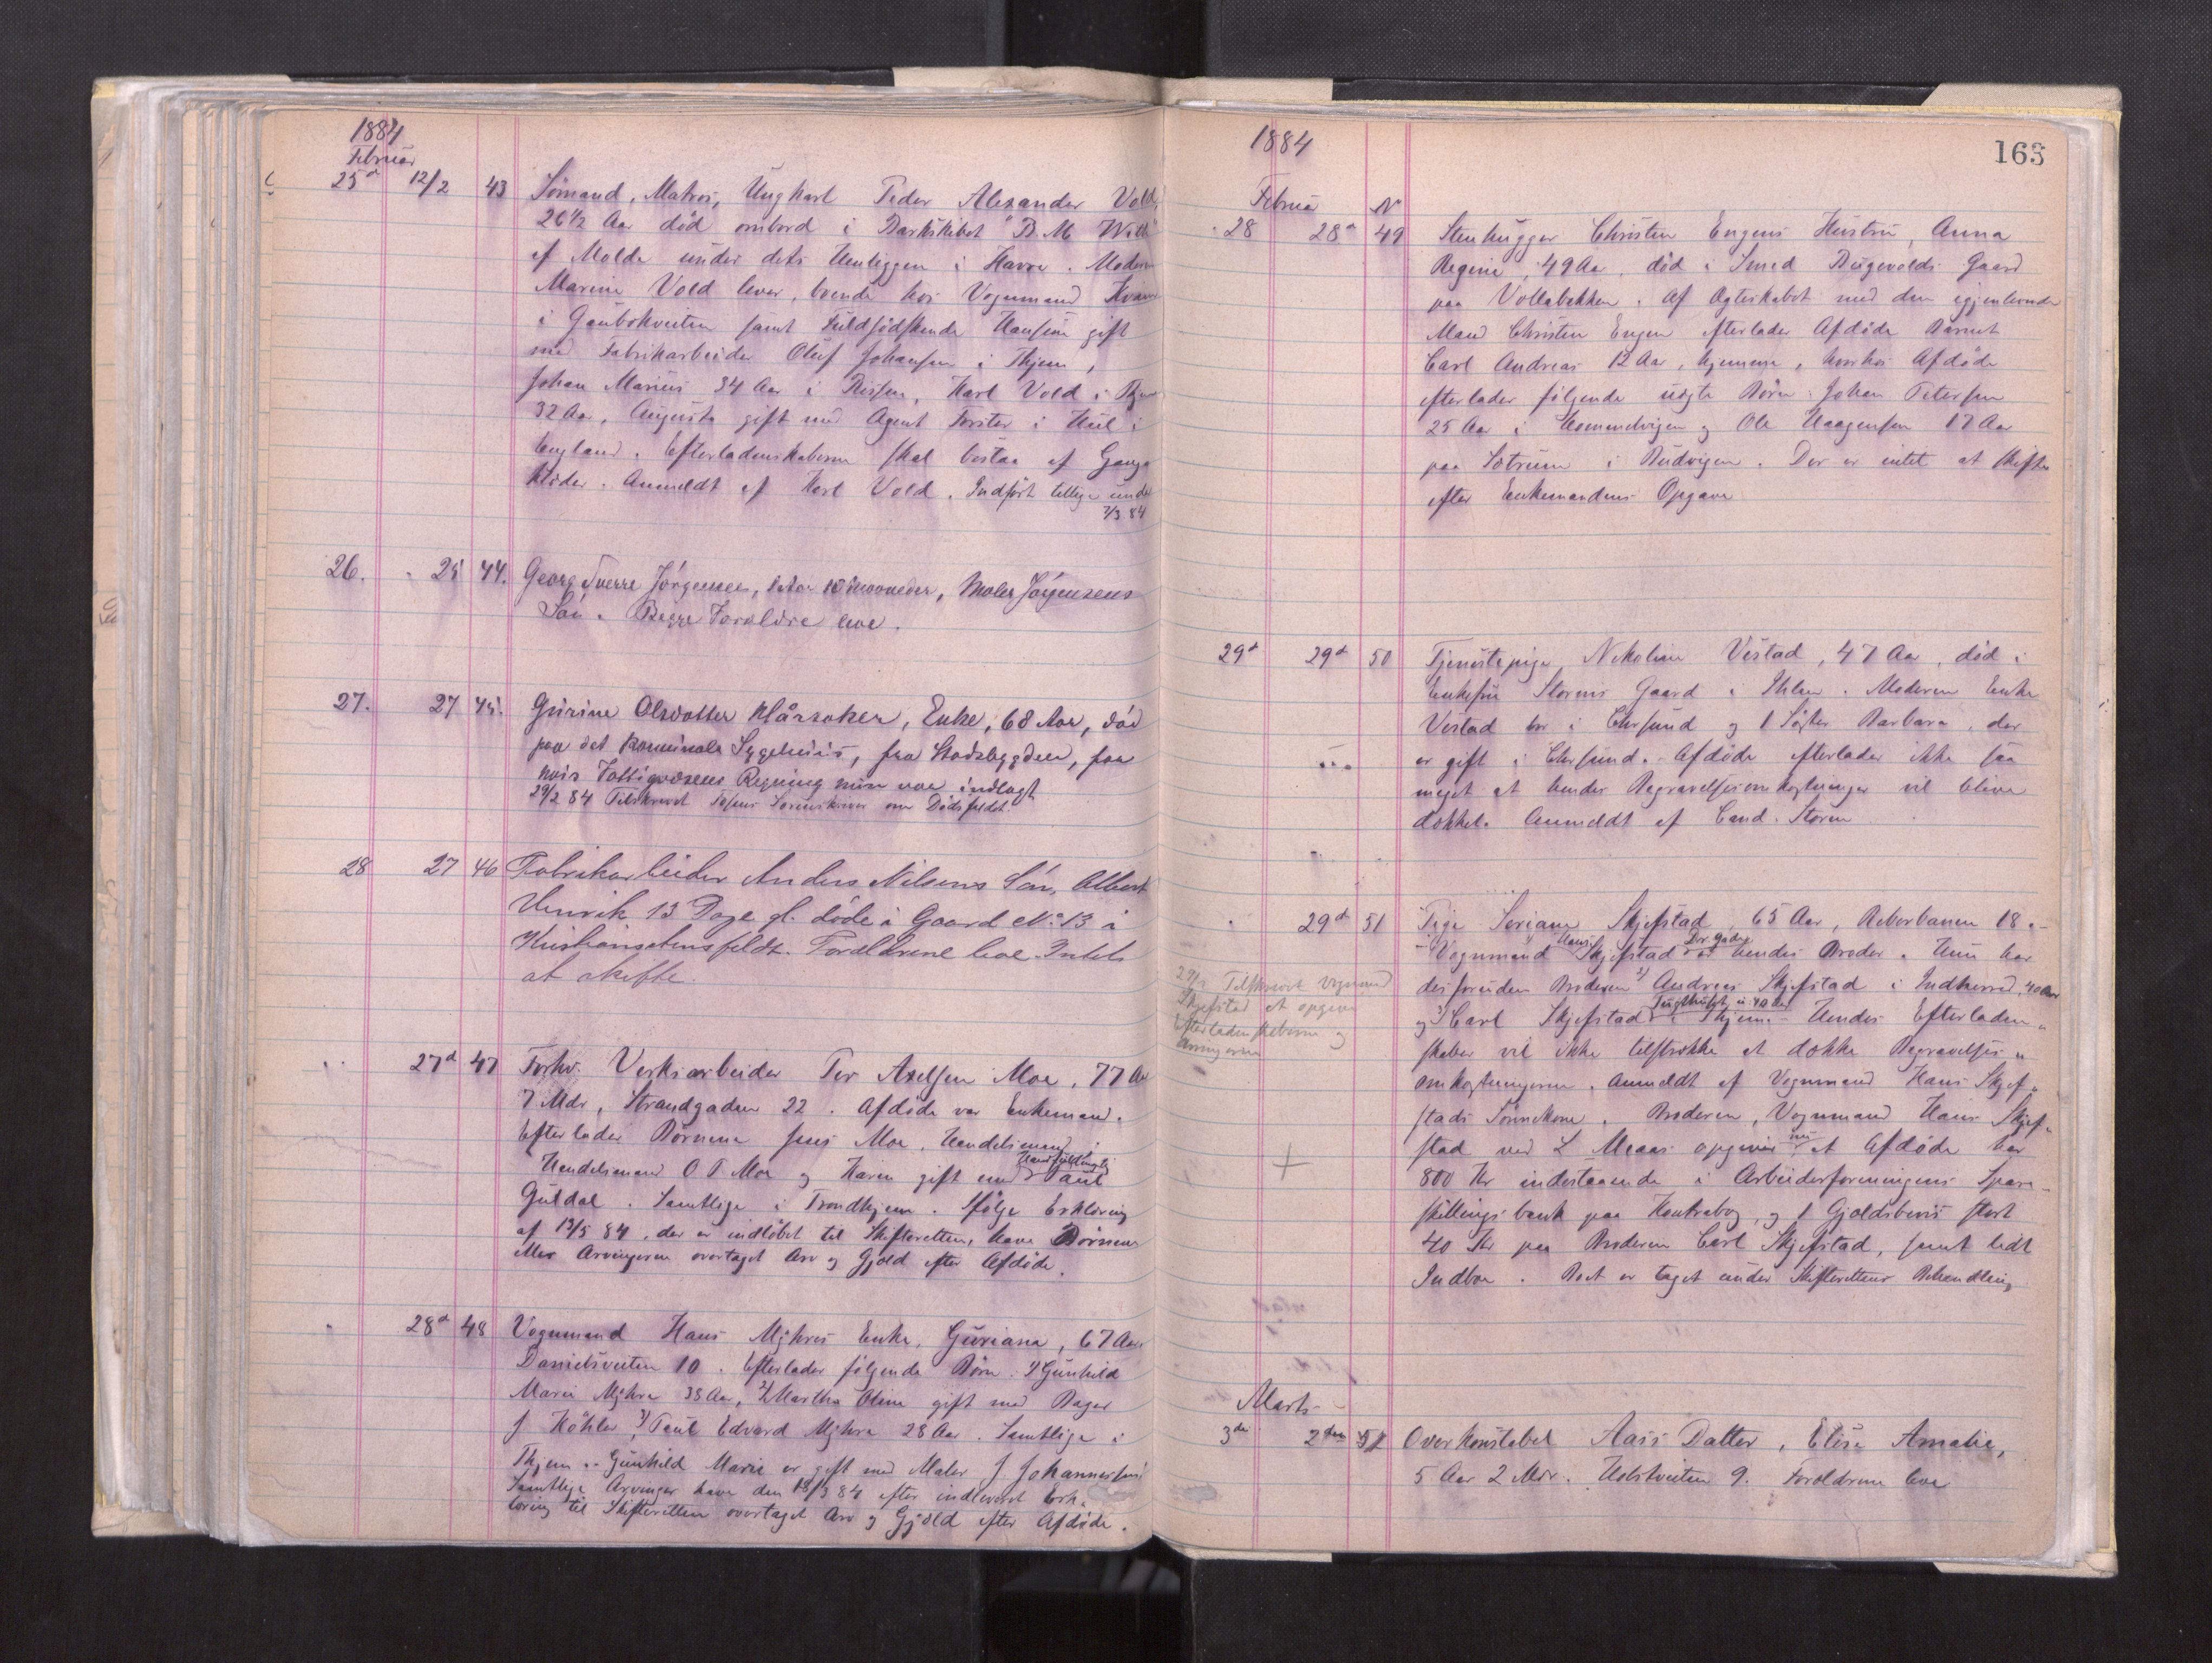 1884
Februar
25d 12/2 43 Sömand, Matros, Ungkarl Peder Alexander Vold,
26 1/2 Aar död ombord i Barkskibet "B. M. 
af Molde under dets Henliggen i Havre. Moderen
Marine Vold lever, boende hos Vognmand
i Gaubækveiten samt Fuldsödskende Hansine gift
med Fabrikarbeider Oluf Johansen i Thjem,
Johan Marius 34 Aar i Rissen, Karl Vold i
32 Aar, Augusta gift med Agent Forster i Hul i
England. Efterladenskaberne skal bestaa af Gang
klæder. Anmeldt af Karl Vold. Indført tillige under
7/3 84
26. " 25 44. Georg Sverre Jörgensen, 1 Aar 10 Maaneder, Maler Jörgensens
Sön. Begge Forældre leve.
27. 27 45. Gurine Olsdatter Kårsaker, Enke, 68 Aar, död
paa det kommunale Sygehuus, fra Stadsbygden, for
hvis Fattigvæsens Regning hun var indlagt
29/2 84 Tilskrevet Fosens Sorenskriver om Dödsfaldet.
28 27 46 Fabrikarbeider Anders Nilsens Sön, Albert
Henrik 13 Dage gl. döde i Gaard No 13 i
Kristiansstensfeldt. Forældrene leve. Intet
at skifte.
" 27d 47 Forhv. Verksarbeider Per Axelsen Moe, 77 Aar
7 Mdr, Strandgaden 22. Afdöde var Enkemand.
Efterlader Börnene Jens Moe, Handelsmand,
Handelsmand O P Moe og Karen gift med Handelsfuldmægtig Paul
Guldal. Samtlige i Trondhjem. Ifølge Erklæring
af 13/5 84, der er indløbet til Skifteretten, have Börnene
eller Arvingerne overtaget Arv og Gjæld efter Afdöde.
" 28d 48 Vognmand Hans Mjhres Enke, Guriana, 67 Aar,
Danielsveiten 10. Efterlader følgende Börn: 1/ Gunhild
Marie Mjhre 38 Aar, 2/ Martha Oline gift med Bager
J Köhler, 3/ Paul Edvard Mjhre 28 Aar. Samtlige i
Thjem. - Gunhild Marie er gift med Maler J Johannesen.
Samtlige Arvinger have den 18/3 84 efter indleveret Erk-
læring til Skifteretten overtaget Arv og Gjæld efter Afdöde.
1884
163
Februar No
28 28d 49 Stenhugger Christen Engens Hustru, Anna
Regine, 49 Aar, död i Smed Bugevolds Gaard
paa Vollabakken. Af Ægteskabet med den igjenlevende
Mand Christen Engen efterlader Afdöde Barnet
Carl Andreas 12 Aar, hjemme, hvorhos Afdöde
efterlader følgende uægte Börn: Johan Petersen
25 Aar i Hommelvigen og Ole Haagensen 17 Aar
paa Sætrum i Budvigen. Der er intet at skifte
efter Enkemandens Opgave
29d 29d 50 Tjenestepige Nikoline Vestad, 47 Aar, död i
Enkefru Storms Gaard i Ihlen. Moderen Enke
Vestad bor i Chrsund og 1 Søster Barbara, der
er gift i Chrsund. - Afdöde efterlader ikke saa
meget at hendes Begravelsesomkostninger vil blive
dækket. Anmeldt af Cand. Storm
" 29d 51 Pige Seriane Skjefstad, 65 Aar, Reberbanen 18.-
Vognmand Hans Skjefstad er hendes Broder. Hun har
desforuden Broderen 2/ Andreas Skjefstad i Indherred, 40 Aar
og 3/ Carl Skjefstad i Thjem. - Hendes Efterladen-
skaber vil ikke tilstrække at dække Begravelses-
omkostningerne. Anmeldt af Vognmand Hans Skjef-
stads Sönnekone. Broderen, Vognmand Hans Skjef-
stad ved L Meaas opgiver nu at Afdöde har
800 Kr indestaaende i Arbeiderforeningens Spare-
skillingsbank paa Kontrabog, og 1 Gjældsbevis stort
40 Kr paa Broderen Carl Skjefstad, samt lidt
Indbo. Boet er taget under Skifterettens Behandling
29/2 Tilskrevet Vognmand
Skjefstad at opgive
Efterladenskaberne og
Arvingerne
Marts
3die 2den 52 Overkonstabel Aass Datter, Elise Amalie,
5 Aar 2 Mdr. Holstveiten 9. Forældrene leve